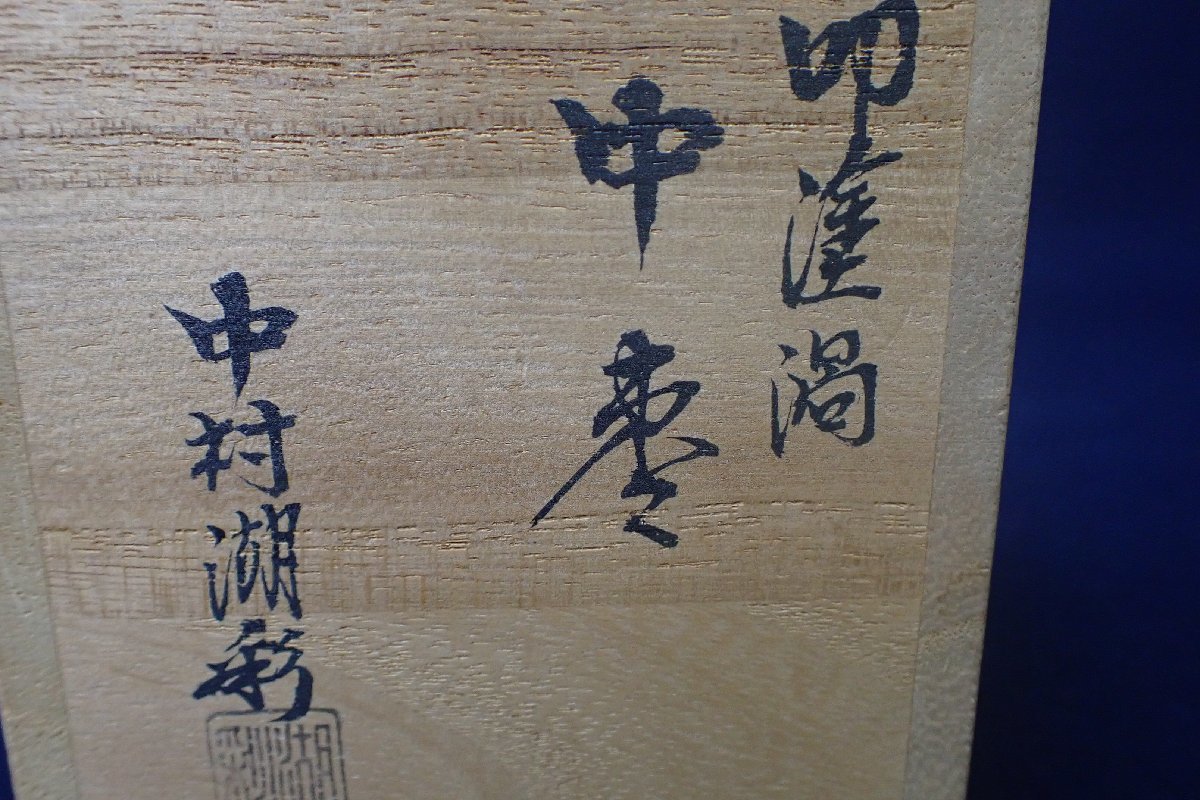 叩塗渦
中棗
中村湖彩
湖彩